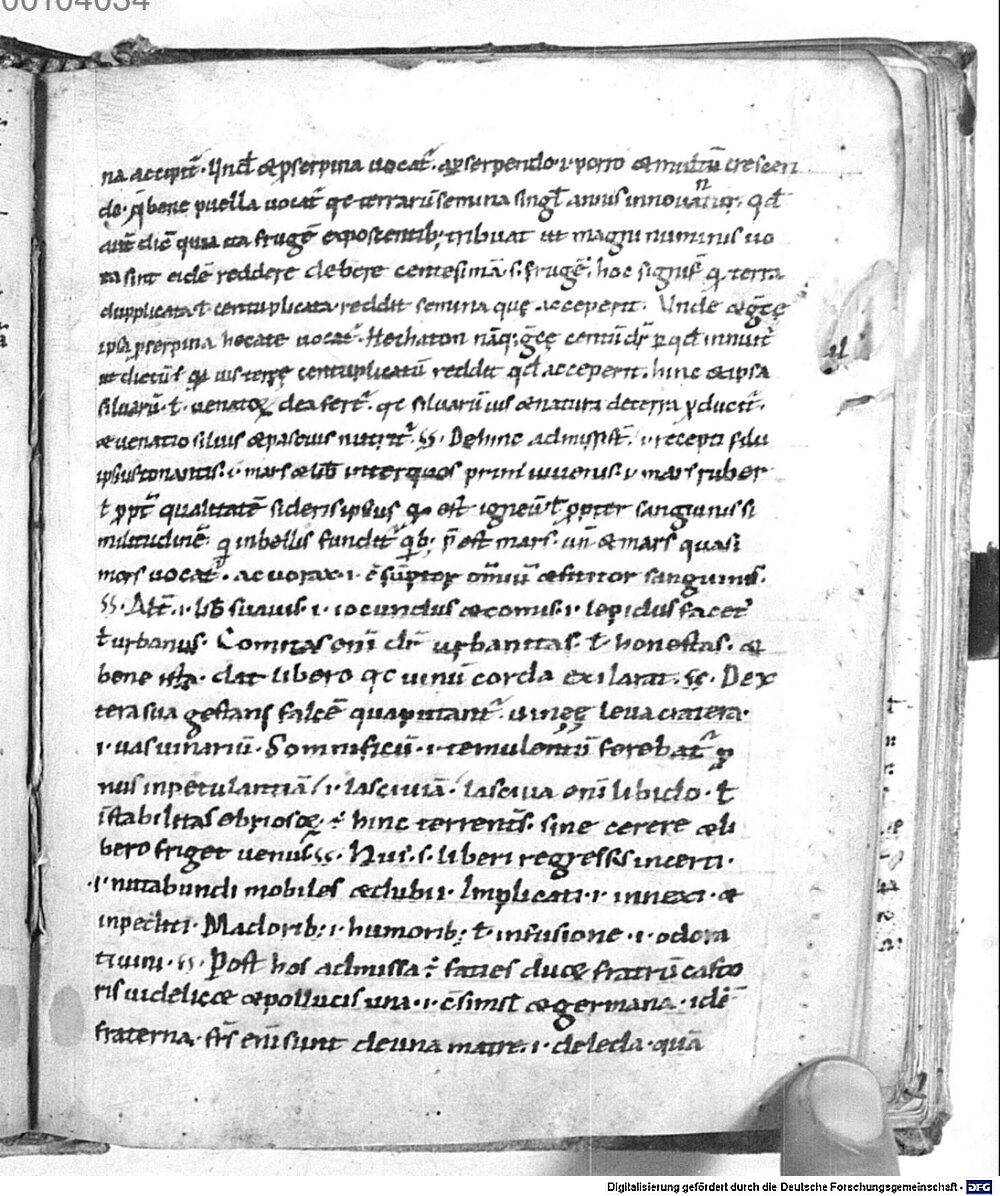 00104034
na accipit᷒. Und̄ & p̄serpina uocat᷒. a p̄serpendo .i. porro & multū crescen
do. q̄ bene puella uocat᷒ qc terrarū semina singl̄ annis innouant᷒. qd̄
aut̄ dic̄ quia ita frugē exposcentib; tribuat ut magni numinis uo
ta sint eidē reddere debere centesimā .s. frugē. hoc signif̄ q terra
dupplicata ł centuplicata reddit semina quę acceperit. Unde & gr̄cę
ipsa p̄serpina hecate uocat᷒. Hechaton nāq; gr̄cę centū dr̄ p qd̄ innuit᷒
ut dictū ē qa uis terrę centuplicatū reddit qd̄ acceperit. hinc & ipsa
siluarū ł uenatoꝝ dea fert᷒. qc siluarū uis & natura de terra p̄ducit᷒.
& uenatio siluis & pascuis nutrit᷒. §§. Dehinc admissi st̄ .i. recepti filii
ipsius tonantis .i. mars & lib̄ inter quos prim iuuenis .i. mars ruber
ł ppt᷒ qualitatē sideris ipsius qa est igneū ł propter sanguinis si
militudinē q in bellis fundit᷒ qb; p̄est mars. un̄ & mars quasi
mors uocat᷒. ac uorax .i. c̄sūptor omniū & sititor sanguinis.
§§. Alt̄ .i. lib̄ suauis .i. iocundus & comis .i. lepidus facet᷒
ł urbanus. Comitas eni dr̄ urbanitas ł honestas. &
bene ista dat libero qc uinū corda exilarat. §§. Dex
tera sua gestans falcē qua putant᷒ uineę leua cratera.
.i. uas uinariū. Somnificū .i. temulentū ferebat᷒ p
nus in petulantiā / .i. lasciuiā. lasciua eni libido ł
īstabilitas ebriosoꝝ ē hinc terrent᷒. sine cerere & li
bero friget uenus §§. Hui᷒ .s. liberi regressus incerti.
.i. nutabundi mobiles & dubii. Implicati .i. innexi &
inpediti. Madorib; .i. humorib; ł infusione .i. odora
ti uini. §§. Post hos admissa ē facies duoꝝ fratrū casto
ris uidelicet & pollucis una .i. c̄simil̄ & germana .i. idē
fraterna. fr̄s eni sunt de una matre .i. de leda quā
Digitalisierung gefördert durch die Deutsche Forschungsgemeinschaft - DFG